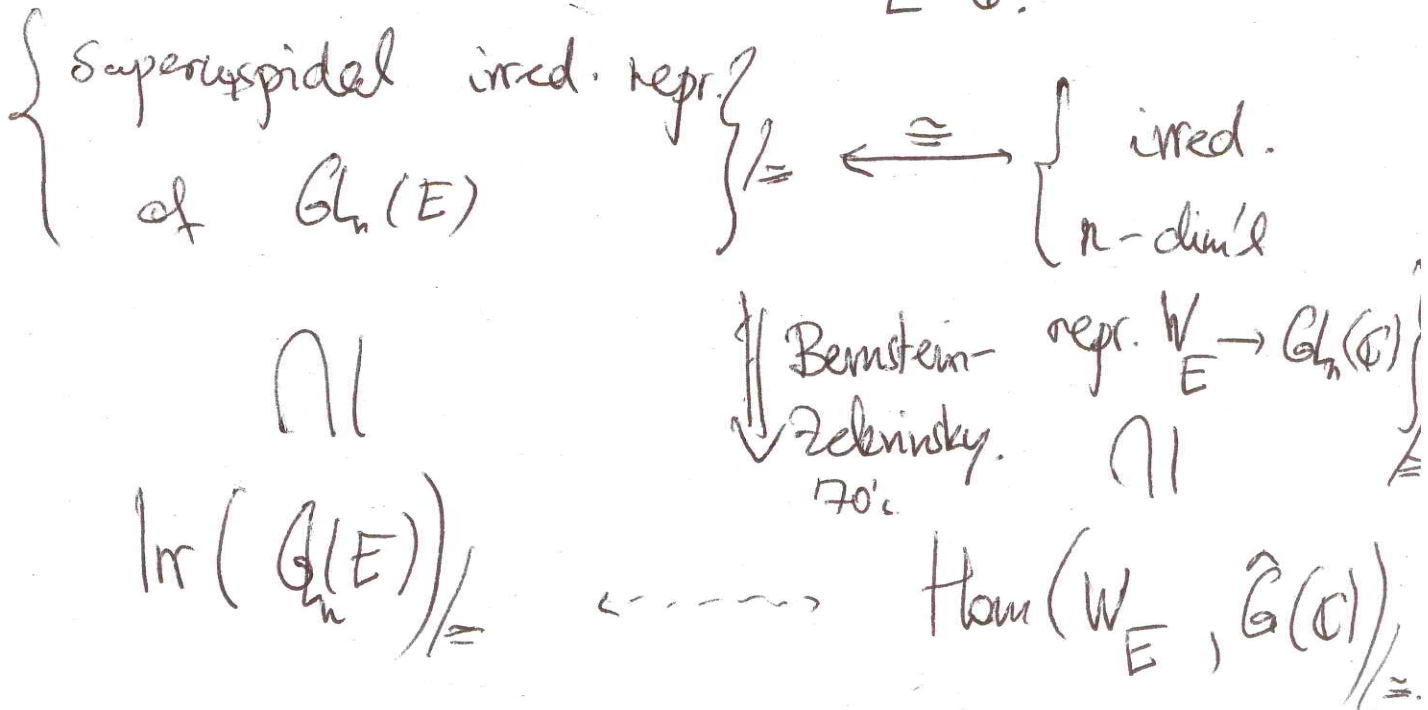 { Supercuspidal irred. repr. of GLₙ(E) }/≅ ←≅→ { irred. n-dim'l repr. W_E → GLₙ(ℂ) }/≅
∩| ⇓ Bernstein-Zelevinsky. 70's ∩|
Irr(GLₙ(E))/≅ ⇠⇢ Hom(W_E, Ĝ(ℂ))/≅.